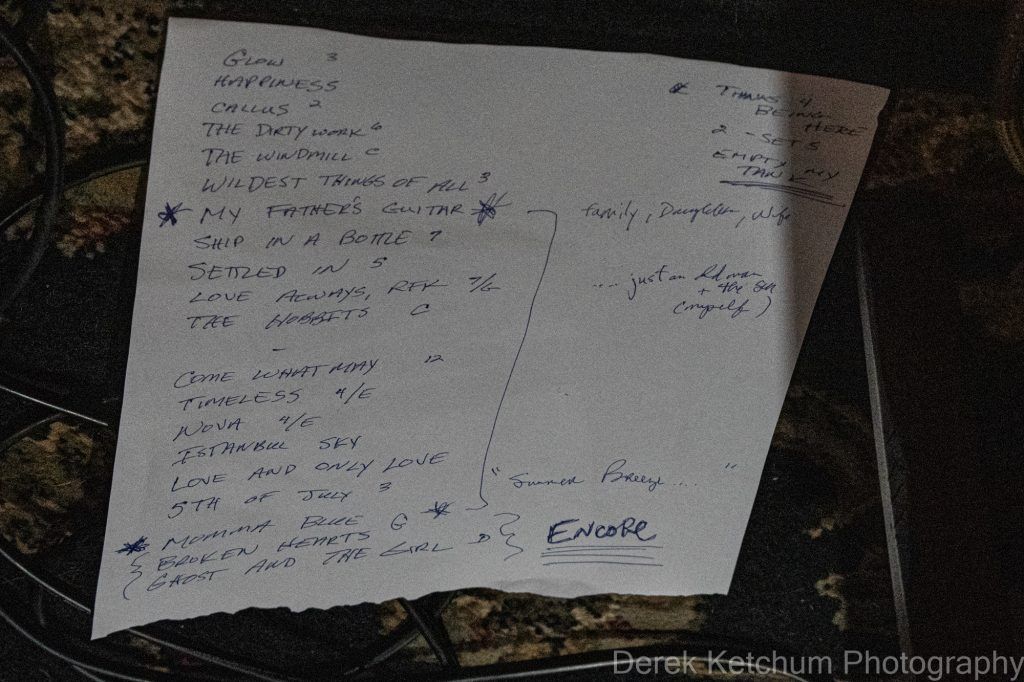 GLOW 3
HAPPINESS
CALLUS 2
THE DIRTY WORK 6
THE WINDMILL C
WILDEST THINGS OF ALL 3
* MY FATHER'S GUITAR *
SHIP IN A BOTTLE 7
SETTLED IN 5
LOVE ALWAYS, RFK 7/G
THE HOBBITS C
-
COME WHAT MAY 12
TIMELESS 4/E
NOVA 4/E
ISTANBUL SKY
LOVE AND ONLY LOVE
5TH OF JULY 3
* MOMMA BLUE G *
BROKEN HEARTS
GHOST AND THE GIRL D
THINKS 4
BEING HERE
2 - SETS
EMPTY MY
TANK
family, Daughter, Wife
.... just an
+ the
(myself)
"Summer Breeze...."
ENCORE
Derek Ketchum Photography